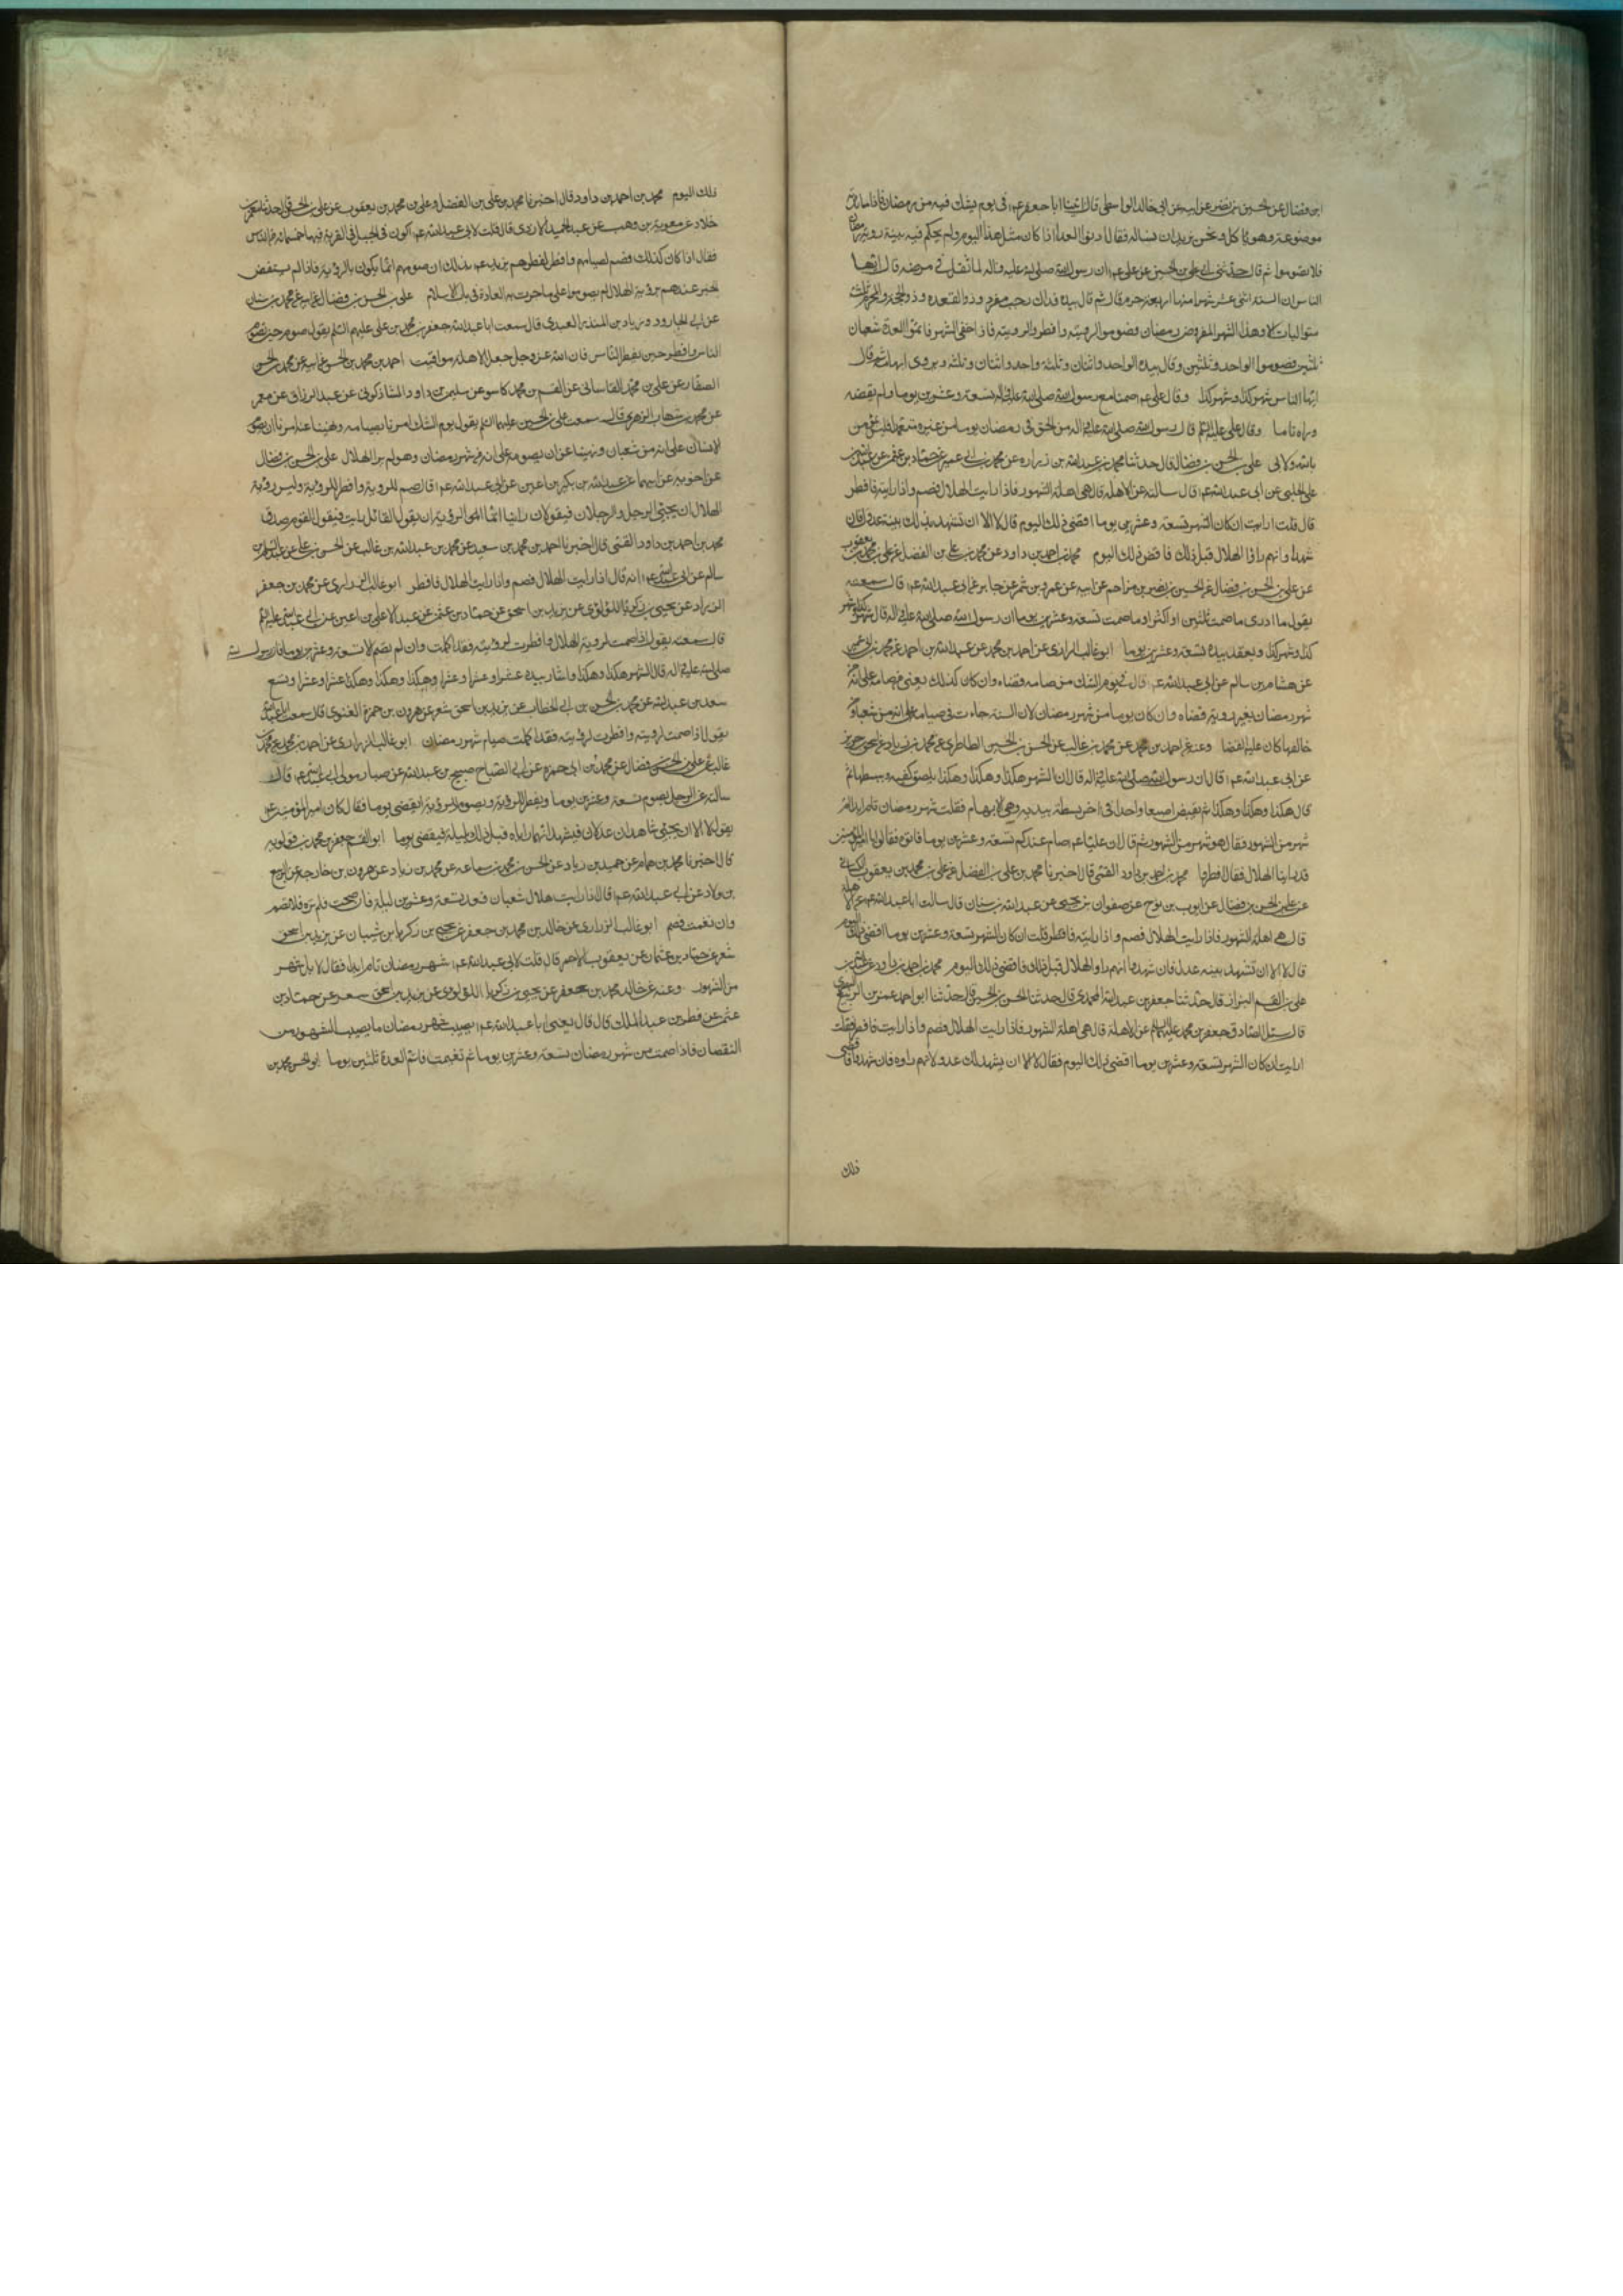 ابن فضال عن الحسين بن نصر عن ابيه عن ابي خالد الواسطي قال اتينا ابا جعفر عم في يوم يشك فيه من رمضان فاذا مائدة
موضوعة وهو ياكل ونحن نريد ان نساله فقال ادنوا الغدا اذا كان مثل هذا اليوم ولم يحكم فيه بينة روية رمضان
فلا تصوموا ثم قال حدثني ابي علي بن الحسين عن علي عم ان رسول الله صلى الله عليه واله لما ثقل في مرضه قال ايها
الناس ان السنة اثنى عشر شهرا منها اربعة حرم قال ثم قال بيده فذاك رجب مفرد وذو القعده وذو الحجة والمحرم ثلث
متواليات الا وهذا الشهر المفروض رمضان فصوموا لرويته وافطروا لرويته فاذا خفى الشهر فاتموا العدة شعبان
ثلثين فصوموا الواحد وثلثين وقال بيده الواحد واثنان وثلثة واحد واثنان وثلثة ويزوى ابهامه ثم قال
ايها الناس شهر كذا وشهر كذا وقال علي عم صمنا مع رسول الله صلى الله عليه واله تسعة وعشرين يوما ولم نقضه
وراه تاما وقال علي عليه السلم قال رسول الله صلى الله عليه واله من الحق في رمضان يوما من غيره متعمدا فليس يؤمن
بالله ولا بى علي بن الحسن بن فضال قال حدثنا محمد بن عبد الله بن زراره عن محمد بن ابي عمير عن حماد بن عثمن عن عبيد الله بن
علي الحلبي عن ابي عبد الله عم قال سالته عن الاهلة قال هي اهلة الشهور فاذا رايت الهلال فصم واذا رايته فافطر
قال قلت ارايت ان كان الشهر تسعة وعشرين يوما اقضى ذلك اليوم قال لا الا ان تشهد بذلك بينة عدول فان
شهدوا انهم راوا الهلال قبل ذلك فاقض ذلك اليوم محمد بن احمد بن داود عن محمد بن علي بن الفضل عن علي بن محمد بن يعقوب
عن علي بن الحسن بن فضال عن الحسين بن نصر بن مزاحم عن ابيه عن عمرو بن شمر عن جابر عن ابي عبد الله عم قال سمعته
يقول ما ادرى ما صمت ثلثين او اكثر او ما صمت تسعة وعشرين يوما ان رسول الله صلى الله عليه واله قال شهر كذا وشهر
كذا وشهر كذا ويعقد بيده تسعة وعشرين يوما ابو غالب الزرارى عن احمد بن محمد عن عبد الله بن احمد عن محمد بن ابي عمير
عن هشام بن سالم عن ابي عبد الله عم قال في يوم الشك من صامه قضاه وان كان كذلك يعني من صامه على انه من
شهر رمضان بغير روية قضاه وان كان يوما من شهر رمضان لان السنة جاءت في صيامه على انه من شعبان ومن
خالفها كان عليه القضا وعنه عن احمد بن محمد عن محمد بن غالب عن الحسن بن الحسين الطاطرى عن محمد بن زياد عن اسحق بن جرير
عن ابي عبد الله عم قال ان رسول الله صلى الله عليه واله قال ان الشهر هكذا وهكذا وهكذا يلصق كفيه ويبسطهما ثم
قال هكذا وهكذا وهكذا ثم يقبض اصبعا واحدا في اخر بسطة بيديه وهي الابهام فقلت شهر رمضان تام ابدا ام
شهر من الشهور فقال هو شهر من الشهور ثم قال ان عليا عم صام عندكم تسعة وعشرين يوما فاتوه فقالوا يا امير المؤمنين
قد راينا الهلال فقال افطروا محمد بن احمد بن داود القمى قال اخبرنا محمد بن علي بن الفضل عن علي بن محمد بن يعقوب الكسائي
عن علي بن الحسن بن فضال عن ايوب بن نوح عن صفوان بن يحيى عن عبد الله بن سنان قال سالت ابا عبد الله عم عن الاهلة
قال هي اهلة الشهور فاذا رايت الهلال فصم واذا رايته فافطر قلت ان كان الشهر تسعة وعشرين يوما اقضى ذلك اليوم
قال لا الا ان تشهد بينه عدول فان شهدوا انهم راوا الهلال قبل ذلك فاقضى ذلك اليوم محمد بن احمد بن داود عن عبد الله بن
علي بن القسم البزاز قال حدثنا جعفر بن عبد الله المحمدى قال حدثنا الحسن بن الحسين قال حدثنا ابو احمد عمر بن الربيع البصري
قال سئل الصادق جعفر بن محمد عليهما السلام عن الاهلة قال هي اهلة الشهور فاذا رايت الهلال فصم واذا رايته فافطر فقلت
ارايت ان كان الشهر تسعة وعشرين يوما اقضى ذلك اليوم فقال لا الا ان يشهد لك عدول انهم راوه فان شهدوا فاقضى
ذلك
ذلك اليوم محمد بن احمد بن داود قال اخبرنا محمد بن علي بن الفضل وعلي بن محمد بن يعقوب عن علي بن الحسن قال حدثنا معمر بن
خلاد عن معوية بن وهب عن عبد الحميد الازدى قال قلت لابي عبد الله عم اكون في الجبل في القرية فيها خمسمائة من الناس
فقال اذا كان كذلك فصم لصيامهم وافطر لفطرهم يريد عم بذلك ان صومهم انما يكون بالروية فاذا لم يستفض
الخبر عندهم بروية الهلال لم يصوموا على ما جرت به العادة في بلاد الاسلام علي بن الحسن بن فضال عن ابيه عن محمد بن سنان
عن ابي الجارود زياد بن المنذر العبدى قال سمعت ابا عبد الله جعفر بن محمد بن علي عليهم السلم يقول صوم حين يصوم
الناس وافطر حين يفطر الناس فان الله عز وجل جعل الاهلة مواقيت احمد بن محمد بن الحسن عن ابيه عن محمد بن الحسن
الصفار عن علي بن محمد القاسانى عن القسم بن محمد كاسو عن سليمن بن داود الشاذكونى عن عبد الرزاق عن معمر
عن محمد بن شهاب الزهري قال سمعت علي بن الحسين عليهما السلم يقول يوم الشك امرنا بصيامه ونهينا عنه امرنا ان يصومه
الانسان على انه من شعبان ونهينا عن ان يصومه على انه من شهر رمضان وهو لم ير الهلال علي بن الحسن بن فضال
عن اخويه عن ابيهما عن عبد الله بن بكير بن اعين عن ابي عبد الله عم قال صم للروية وافطر للروية وليس روية
الهلال ان يجيئ الرجل والرجلان فيقولان راينا انما الروية ان يقول القائل رايت فيقول القوم صدق
محمد بن احمد بن داود القمى قال اخبرنا احمد بن محمد بن سعيد عن محمد بن عبد الله بن غالب عن الحسن بن علي عن عبد السلام بن
سالم عن ابي عبد الله عم انه قال اذا رايت الهلال فصم واذا رايت الهلال فافطر ابو غالب الزرارى عن محمد بن جعفر
الزراد عن يحيى بن زكريا اللؤلؤى عن يزيد بن اسحق عن حماد بن عثمن عن عبد الاعلى بن اعين عن ابي عبد الله عليه السلم
قال سمعته يقول اذا صمت لروية الهلال وافطرت لرويته فقد اكملت وان لم تصم الا تسعة وعشرين يوما فان رسول الله
صلى الله عليه واله قال الشهر هكذا وهكذا وهكذا واشار بيده عشرا وعشرا وعشرا وهكذا وهكذا وهكذا عشرا وعشرا وتسع
سعد بن عبد الله عن محمد بن الحسن بن ابي الخطاب عن يزيد بن اسحق شعر عن هرون بن حمزة الغنوى قال سمعت ابا عبد الله
يقول اذا صمت لرويته وافطرت لرويته فقد اكملت صيام شهر رمضان ابو غالب الزرارى عن احمد بن محمد عن محمد بن
غالب عن علي بن الحسن بن فضال عن محمد بن ابي حمزه عن ابي الصباح صبيح بن عبد الله عن صبار مولى ابي عبد الله عم قال
سالته عن الرجل يصوم تسعة وعشرين يوما ويفطر للروية ويصوم للروية ايقضى يوما فقال كان امير المؤمنين عم
يقول لا الا ان يجيئ شاهدان عدلان فيشهدا انهما راياه قبل ذلك بليلة فيقضى يوما ابو القسم جعفر بن محمد بن قولويه
قال اخبرنا محمد بن همام عن حميد بن زياد عن الحسن بن محمد بن سماعه عن محمد بن زياد عن هرون بن خارجة عن الربيع
بن ولاد عن ابي عبد الله عم قال اذا رايت هلال شعبان فعد تسعة وعشرين ليلة فان صحت فلم تره فلا تصم
وان تغيمت فصم ابو غالب الزرارى عن خالد بن محمد بن جعفر عن يحيى بن زكريا بن شيبان عن يزيد بن اسحق
شعر عن حماد بن عثمان عن يعقوب الاحمر قال قلت لابي عبد الله عم شهر رمضان تام ابدا فقال لا بل شهر
من الشهور وعنه عن خالد محمد بن جعفر عن يحيى بن زكريا اللؤلؤى عن يزيد بن اسحق شعر عن حماد بن
عثمن عن فطر بن عبد الملك قال قال يعنى ابا عبد الله عم يصيب شهر رمضان ما يصيب الشهور من
النقصان فاذا صمت من شهر رمضان تسعة وعشرين يوما ثم تغيمت فاتم العدة ثلثين يوما ابو الحسن محمد بن